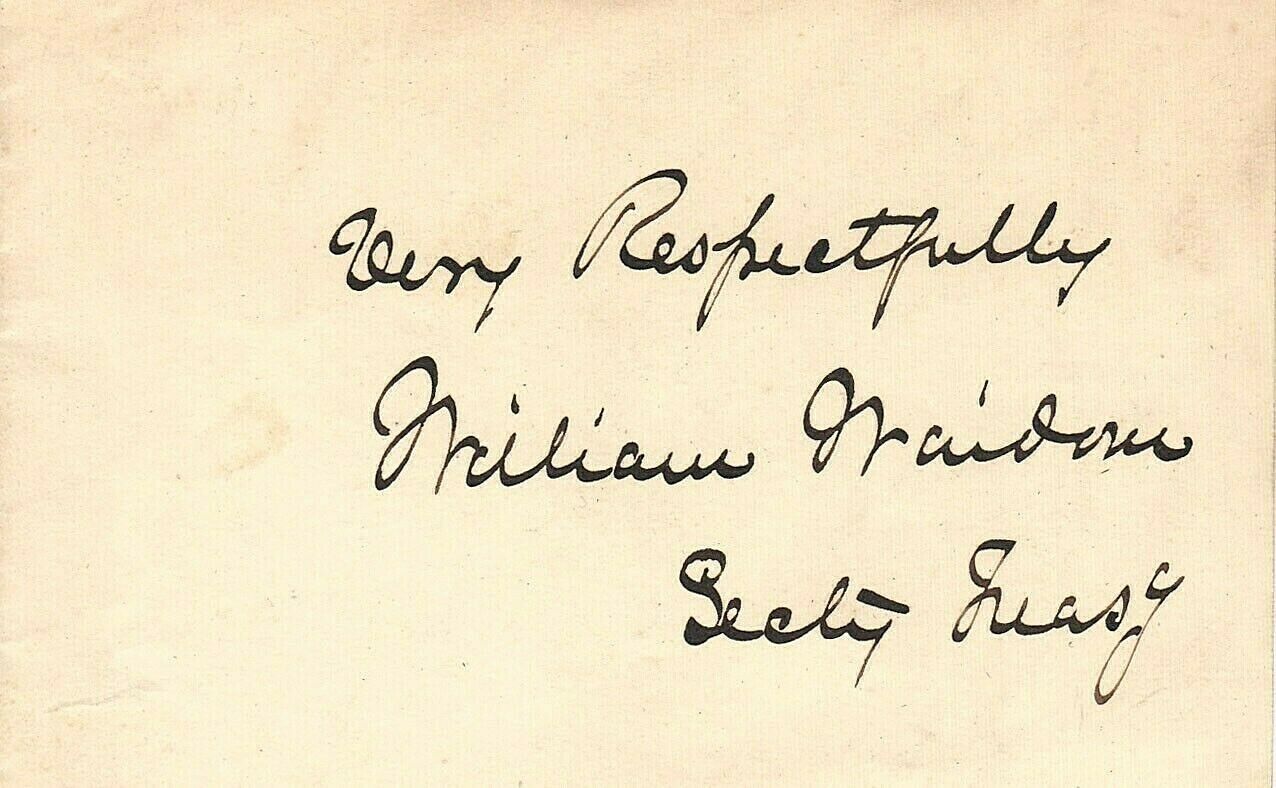 Very Respectfully
William Windom
Secty Treasy